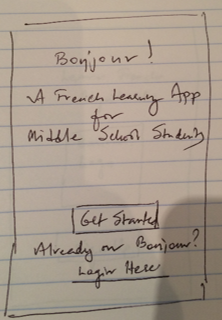 Bonjour!
A French Learning App
for
Middle School Students
Get Started
Already on Bonjour?
Login Here